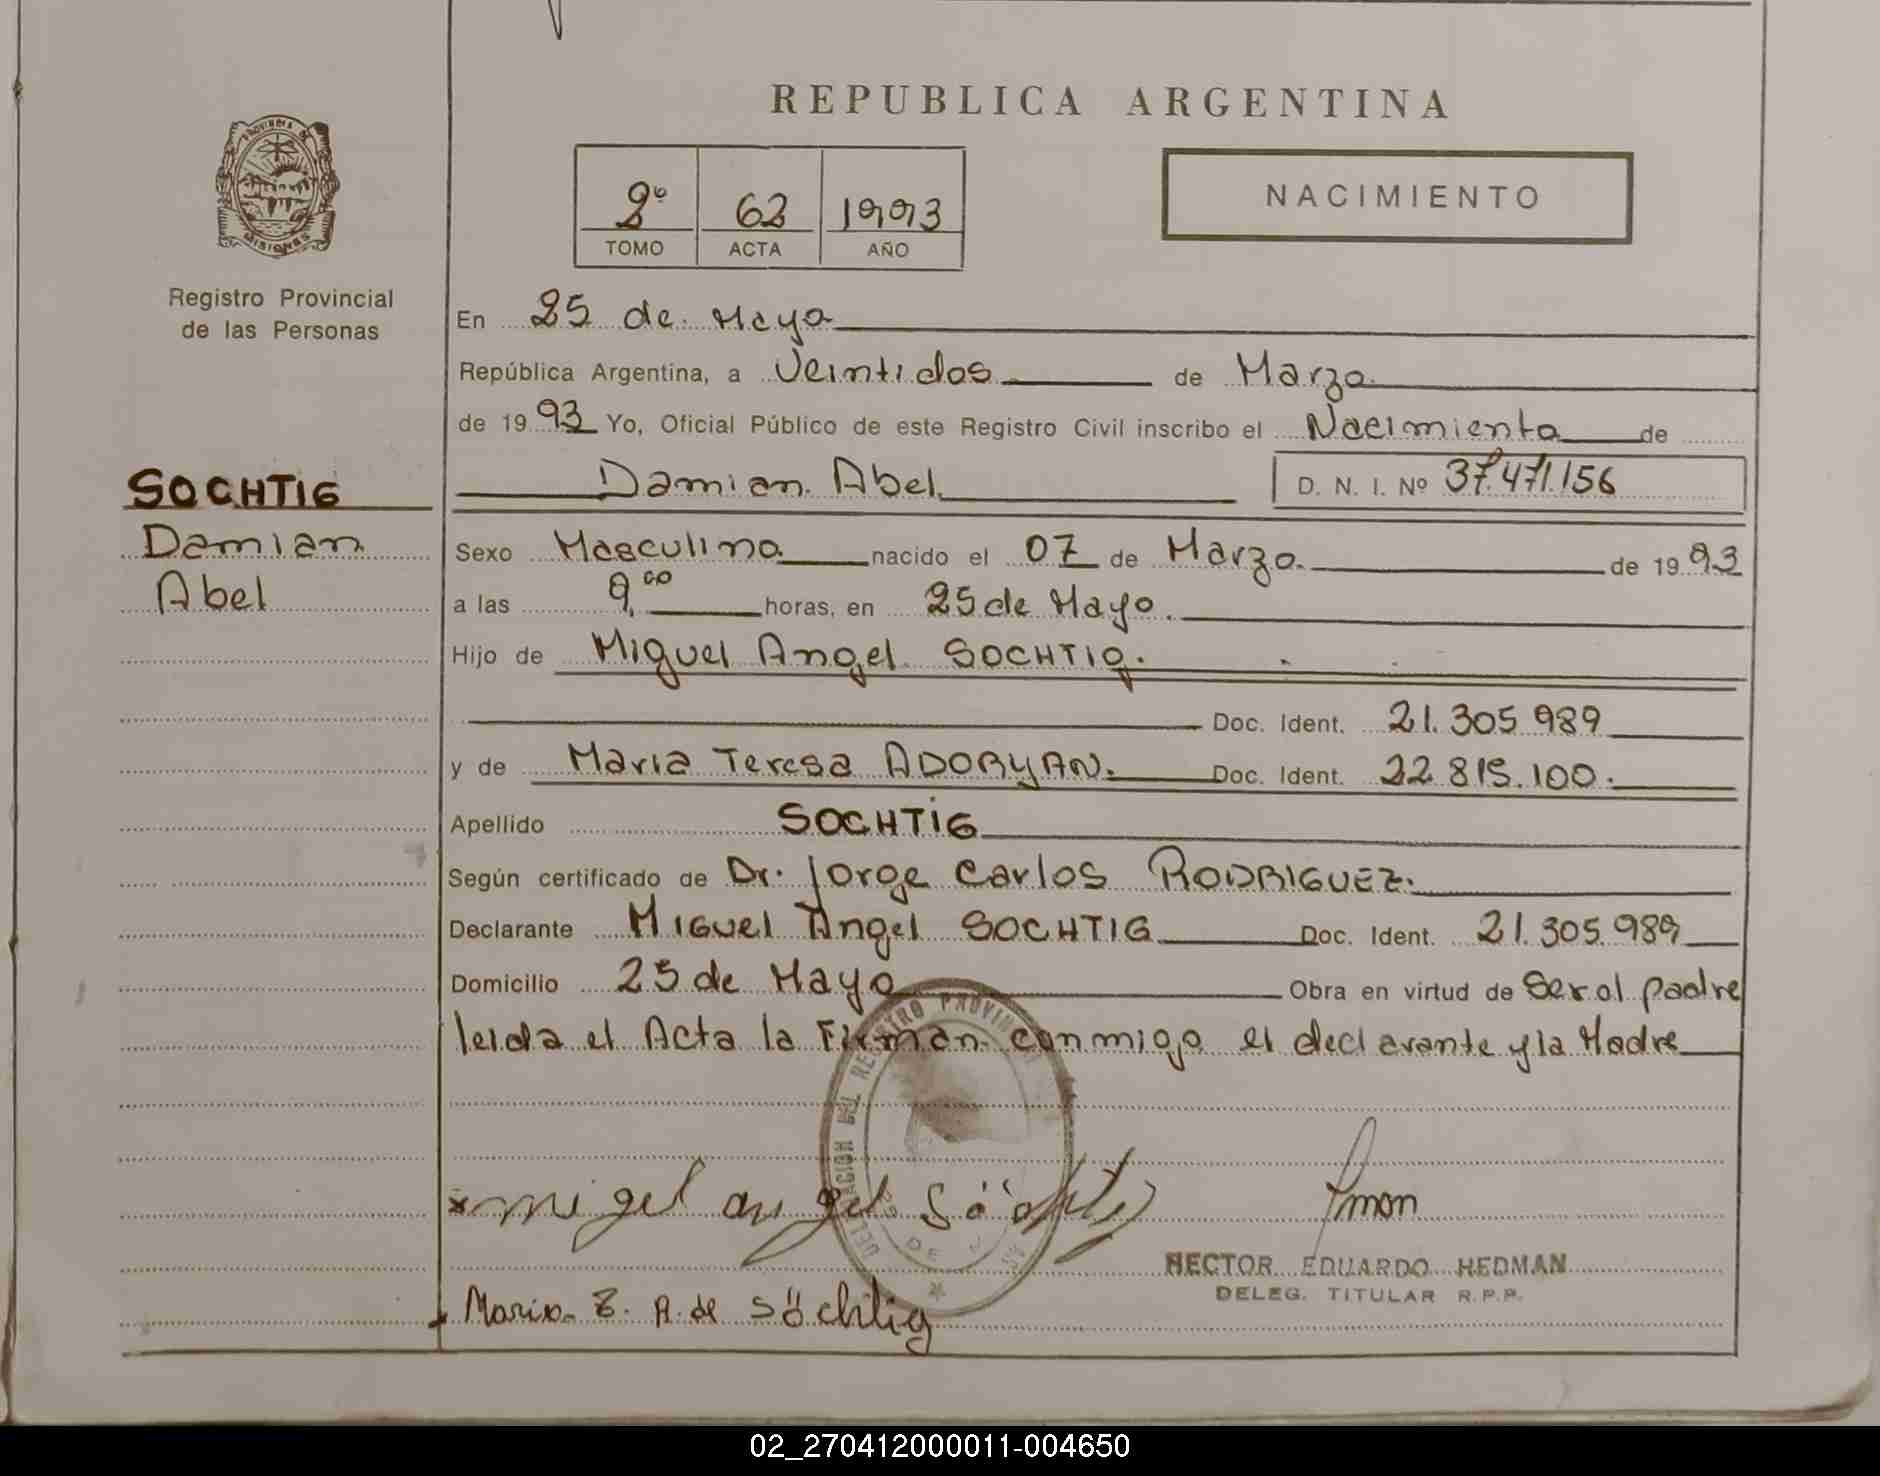 REPUBLICA ARGENTINA
PROVINCIA DE
MISIONES
Registro Provincial
de las Personas
2º 62 1993
TOMO ACTA AÑO
NACIMIENTO
En 25 de Mayo
República Argentina, a Veintidos de Marzo
de 1993 Yo, Oficial Público de este Registro Civil inscribo el Nacimiento de
Damian Abel D. N. I. Nº 37.471.156
SOCHTIG
Damian
Abel
Sexo Masculino nacido el 07 de Marzo. de 1993
a las 9,00 horas, en 25 de Mayo.
Hijo de Miguel Angel SOCHTIG.
Doc. Ident. 21.305.989
y de Maria Teresa ADORYAN. Doc. Ident. 22.815.100.
Apellido SOCHTIG
Según certificado de Dr. Jorge Carlos RODRIGUEZ.
Declarante MIGUEL Angel SOCHTIG Doc. Ident. 21.305.989
Domicilio 25 de Mayo Obra en virtud de Ser el padre
leida el Acta la Firman conmigo el declarante y la Madre
DELEGACION DEL REGISTRO PROVINCIAL
migel angel Söchtig
HECTOR EDUARDO HEDMAN
DELEG. TITULAR R.P.P.
Maria T. A. de Söchtig
02_270412000011-004650